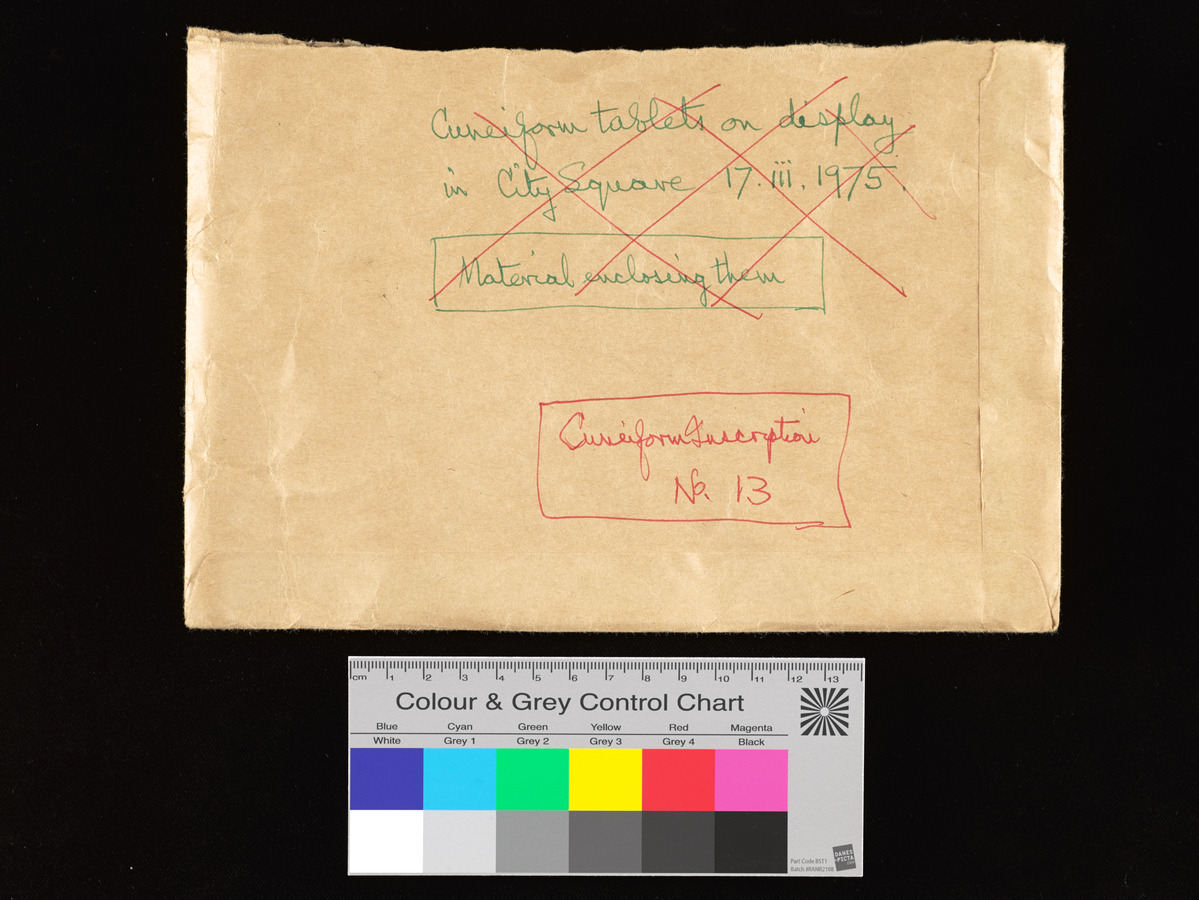 Cuneiform tablets on display
in City Square 17.iii.1975.
Material enclosing them
Cuneiform Inscription
No. 13
cm 1 2 3 4 5 6 7 8 9 10 11 12 13
Colour & Grey Control Chart
Blue Cyan Green Yellow Red Magenta
White Grey 1 Grey 2 Grey 3 Grey 4 Black
Part Code BST1
Batch #RANR2108
DANES
-PICTA
.COM